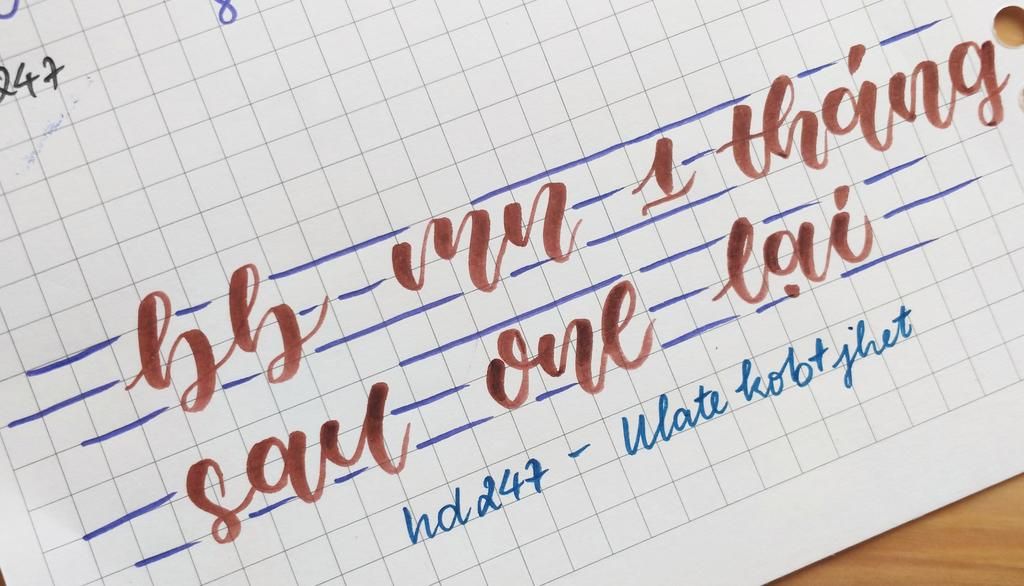 247
bb mn 1 tháng
sau onl lại
hd247 - Ulate kob+jhet